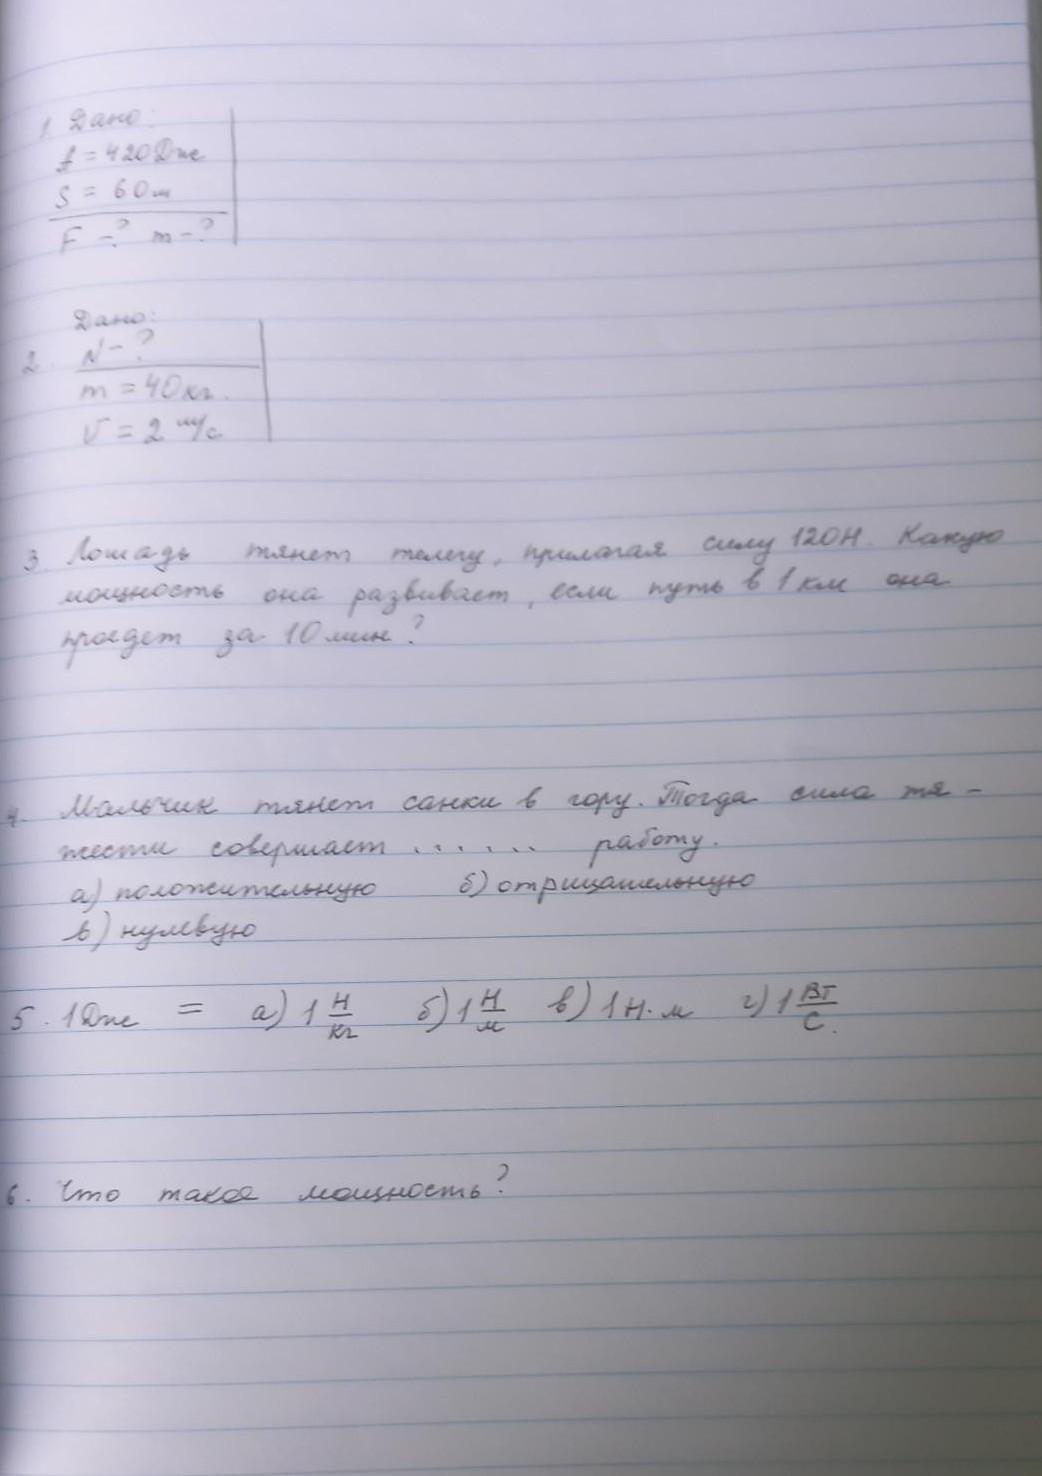 1 Дано:
A = 420 Дж
S = 60 м
F - ? m - ?
Дано:
2. N - ?
m = 40 кг.
V = 2 м/с
3. Лошадь тянет телегу, прилагая силу 120Н. Какую
мощность она развивает, если путь в 1 км она
проедет за 10 мин?
4. Мальчик тянет санки в гору. Тогда сила тя -
жести совершает ...... работу.
а) положительную б) отрицательную
в) нулевую
5. 1 Дж = а) 1 Н/кг б) 1 Н/м в) 1 Н·м г) 1 Вт/с.
6. Что такое мощность?